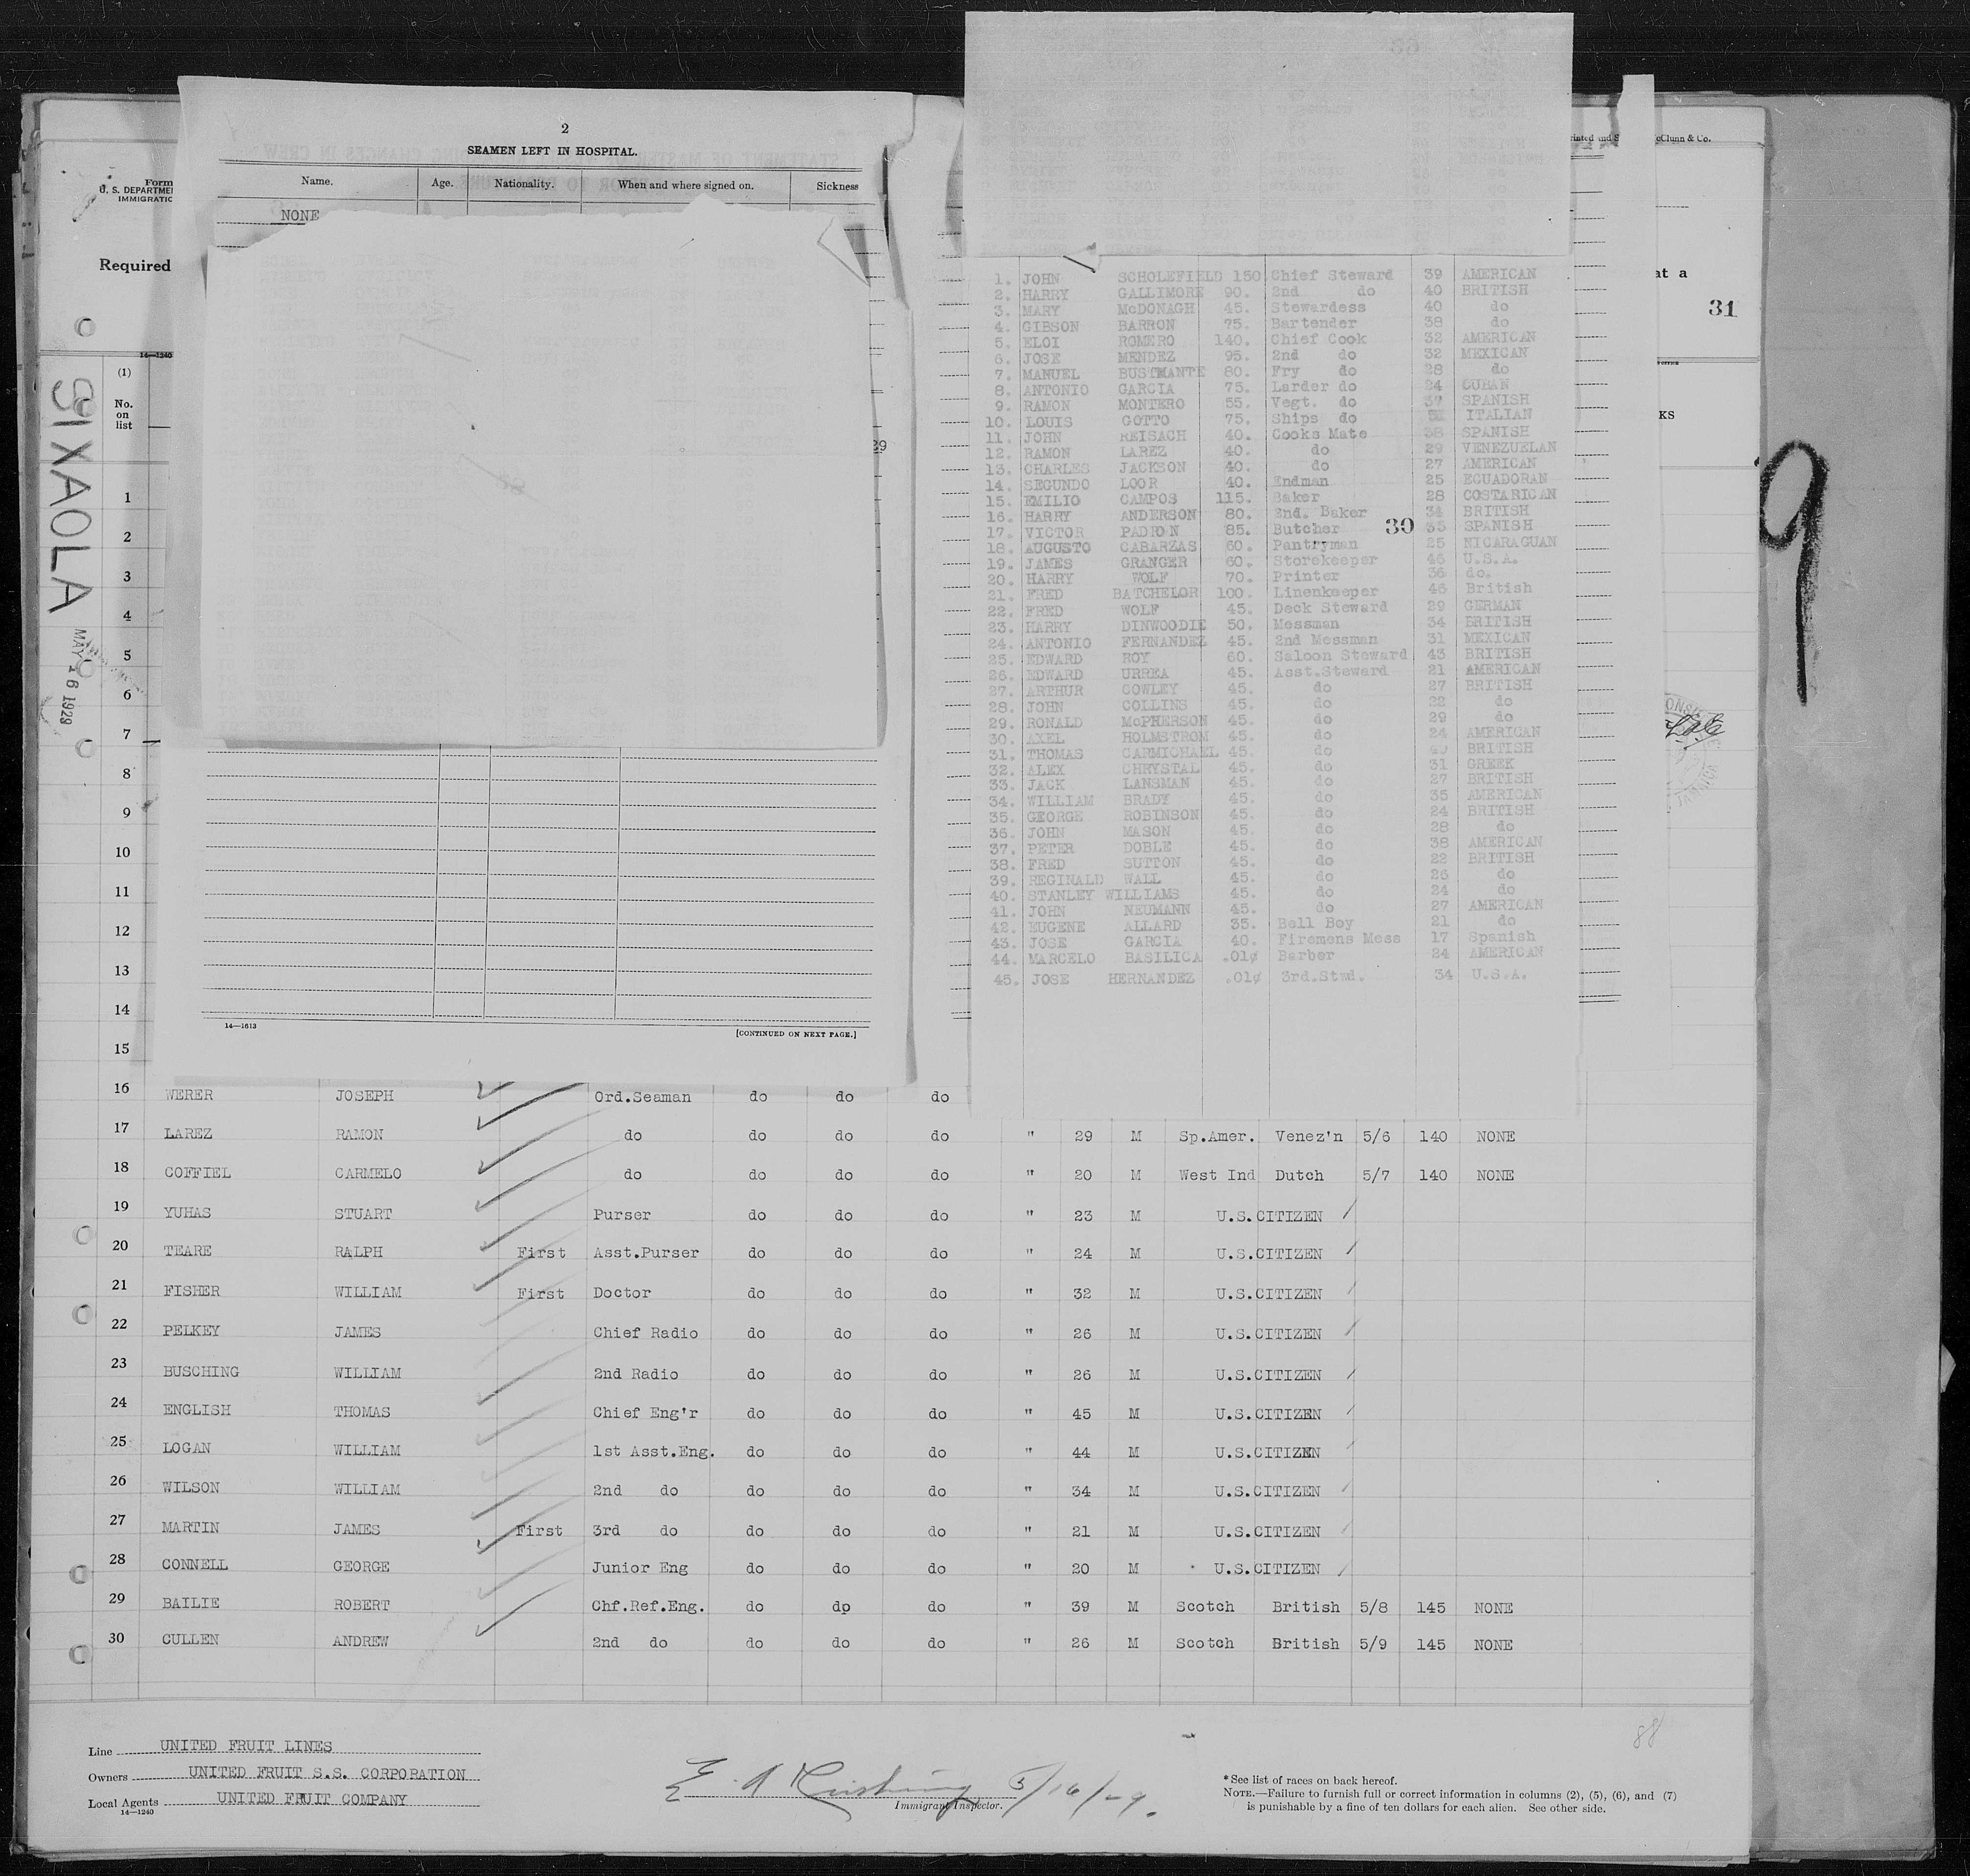 2
SEAMEN LEFT IN HOSPITAL.
Name. Age. Nationality. When and where signed on. Sickness
NONE
Form
U. S. DEPARTME
IMMIGRATIO
Required
14—1240
(1)
No.
on
list
SIXAOLA
MAY 16 1929
29
1
2
3
4
5
6
7
8
9
10
11
12
13
14
15
14—1613 [CONTINUED ON NEXT PAGE.]
cClunn & Co.
at a
31
KS
9
30
1. JOHN SCHOLEFIELD 150 Chief Steward 39 AMERICAN
2. HARRY GALLIMORE 90. 2nd do 40 BRITISH
3. MARY McDONAGH 45. Stewardess 40 do
4. GIBSON BARRON 75. Bartender 38 do
5. ELOI ROMERO 140. Chief Cook 32 AMERICAN
6. JOSE MENDEZ 95. 2nd do 32 MEXICAN
7. MANUEL BUSTMANTE 80. Fry do 28 do
8. ANTONIO GARCIA 75. Larder do 24 CUBAN
9. RAMON MONTERO 55. Vegt. do 37 SPANISH
10. LOUIS GOTTO 75. Ships do ITALIAN
11. JOHN REISACH 40. Cooks Mate 38 SPANISH
12. RAMON LAREZ 40. do 29 VENEZUELAN
13. CHARLES JACKSON 40. do 27 AMERICAN
14. SEGUNDO LOOR 40. Endman 25 ECUADORAN
15. EMILIO CAMPOS 115. Baker 28 COSTARICAN
16. HARRY ANDERSON 80. End. Baker 34 BRITISH
17. VICTOR PADRON 85. Butcher 35 SPANISH
18. AUGUSTO CABARZAS 60. Pantryman 25 NICARAGUAN
19. JAMES GRANGER 60. Storekeeper 46 U.S.A.
20. HARRY WOLF 70. Printer 36 do.
21. FRED BATCHELOR 100. Linenkeeper 46 British
22. FRED WOLF 45. Deck Steward 29 GERMAN
23. HARRY DINWOODIE 50. Messman 34 BRITISH
24. ANTONIO FERNANDEZ 45. 2nd Messman 31 MEXICAN
25. EDWARD ROY 60. Saloon Steward 43 BRITISH
26. EDWARD URREA 45. Asst.Steward 21 AMERICAN
27. ARTHUR COWLEY 45. do 27 BRITISH
28. JOHN COLLINS 45. do 22 do
29. RONALD McPHERSON 45. do 29 do
30. AXEL HOLMSTROM 45. do 24 AMERICAN
31. THOMAS CARMICHAEL 45. do BRITISH
32. ALEX CHRYSTAL 45. do 31 GREEK
33. JACK LANSMAN 45. do 27 BRITISH
34. WILLIAM BRADY 45. do 35 AMERICAN
35. GEORGE ROBINSON 45. do 24 BRITISH
36. JOHN MASON 45. do 28 do
37. PETER DOBLE 45. do 38 AMERICAN
38. FRED SUTTON 45. do 22 BRITISH
39. REGINALD WALL 45. do 26 do
40. STANLEY WILLIAMS 45. do 24 do
41. JOHN NEUMANN 45. do 27 AMERICAN
42. EUGENE ALLARD 35. Bell Boy 21 do
43. JOSE GARCIA 40. Firemens Mess 17 Spanish
44. MARCELO BASILICA .01¢ Barber 24 AMERICAN
45. JOSE HERNANDEZ .01¢ 3rd.Stwd. 34 U.S.A.
16 WERER JOSEPH Ord.Seaman do do do
17 LAREZ RAMON do do do do " 29 M Sp.Amer. Venez'n 5/6 140 NONE
18 COFFIEL CARMELO do do do do " 20 M West Ind Dutch 5/7 140 NONE
19 YUHAS STUART Purser do do do " 23 M U.S.CITIZEN
20 TEARE RALPH First Asst.Purser do do do " 24 M U.S.CITIZEN
21 FISHER WILLIAM First Doctor do do do " 32 M U.S.CITIZEN
22 PELKEY JAMES Chief Radio do do do " 26 M U.S.CITIZEN
23 BUSCHING WILLIAM 2nd Radio do do do " 26 M U.S.CITIZEN
24 ENGLISH THOMAS Chief Eng'r do do do " 45 M U.S.CITIZEN
25 LOGAN WILLIAM 1st Asst.Eng. do do do " 44 M U.S.CITIZEN
26 WILSON WILLIAM 2nd do do do do " 34 M U.S.CITIZEN
27 MARTIN JAMES First 3rd do do do do " 21 M U.S.CITIZEN
28 CONNELL GEORGE Junior Eng do do do " 20 M U.S.CITIZEN
29 BAILIE ROBERT Chf.Ref.Eng. do dp do " 39 M Scotch British 5/8 145 NONE
30 CULLEN ANDREW 2nd do do do do " 26 M Scotch British 5/9 145 NONE
88
Line UNITED FRUIT LINES
Owners UNITED FRUIT S.S. CORPORATION
Local Agents UNITED FRUIT COMPANY
14—1240
E. A Cushing 5/16/29.
Immigrant Inspector.
* See list of races on back hereof.
NOTE.—Failure to furnish full or correct information in columns (2), (5), (6), and (7)
is punishable by a fine of ten dollars for each alien. See other side.